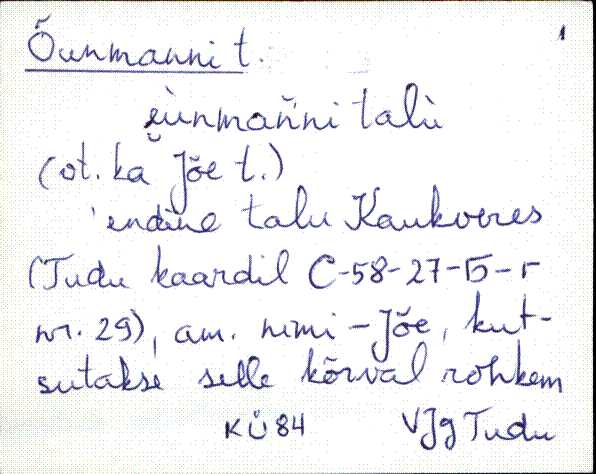 1
Õunmanni t.
e̮ùnmańni talù
(ot. ka Jõe t.)
endine talu Kaukveres
(Tudu kaardil C-58-27-Б-г
nr. 29), am. nimi - Jõe, kut-
sutakse selle kõrval rohkem
KÜ 84 VJg Tudu